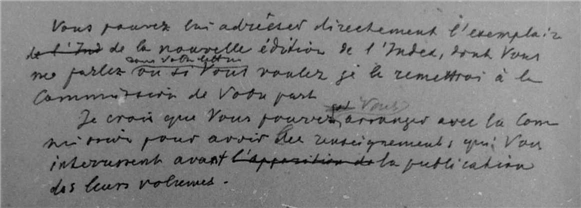 Vous pouvez lui adresser directement l'exemplaire
de l'Ind de la nouvelle édition de l'Index, dont Vous
me parlez dans Votre lettre ou si Vous voulez je le remettrai à la
Commission de Votre part.
Je crois que Vous pouvez Vous arranger avec la Com
mission pour avoir des renseignements, qui Vous
interessent avant l'apposition de la publication
des leurs volumes.